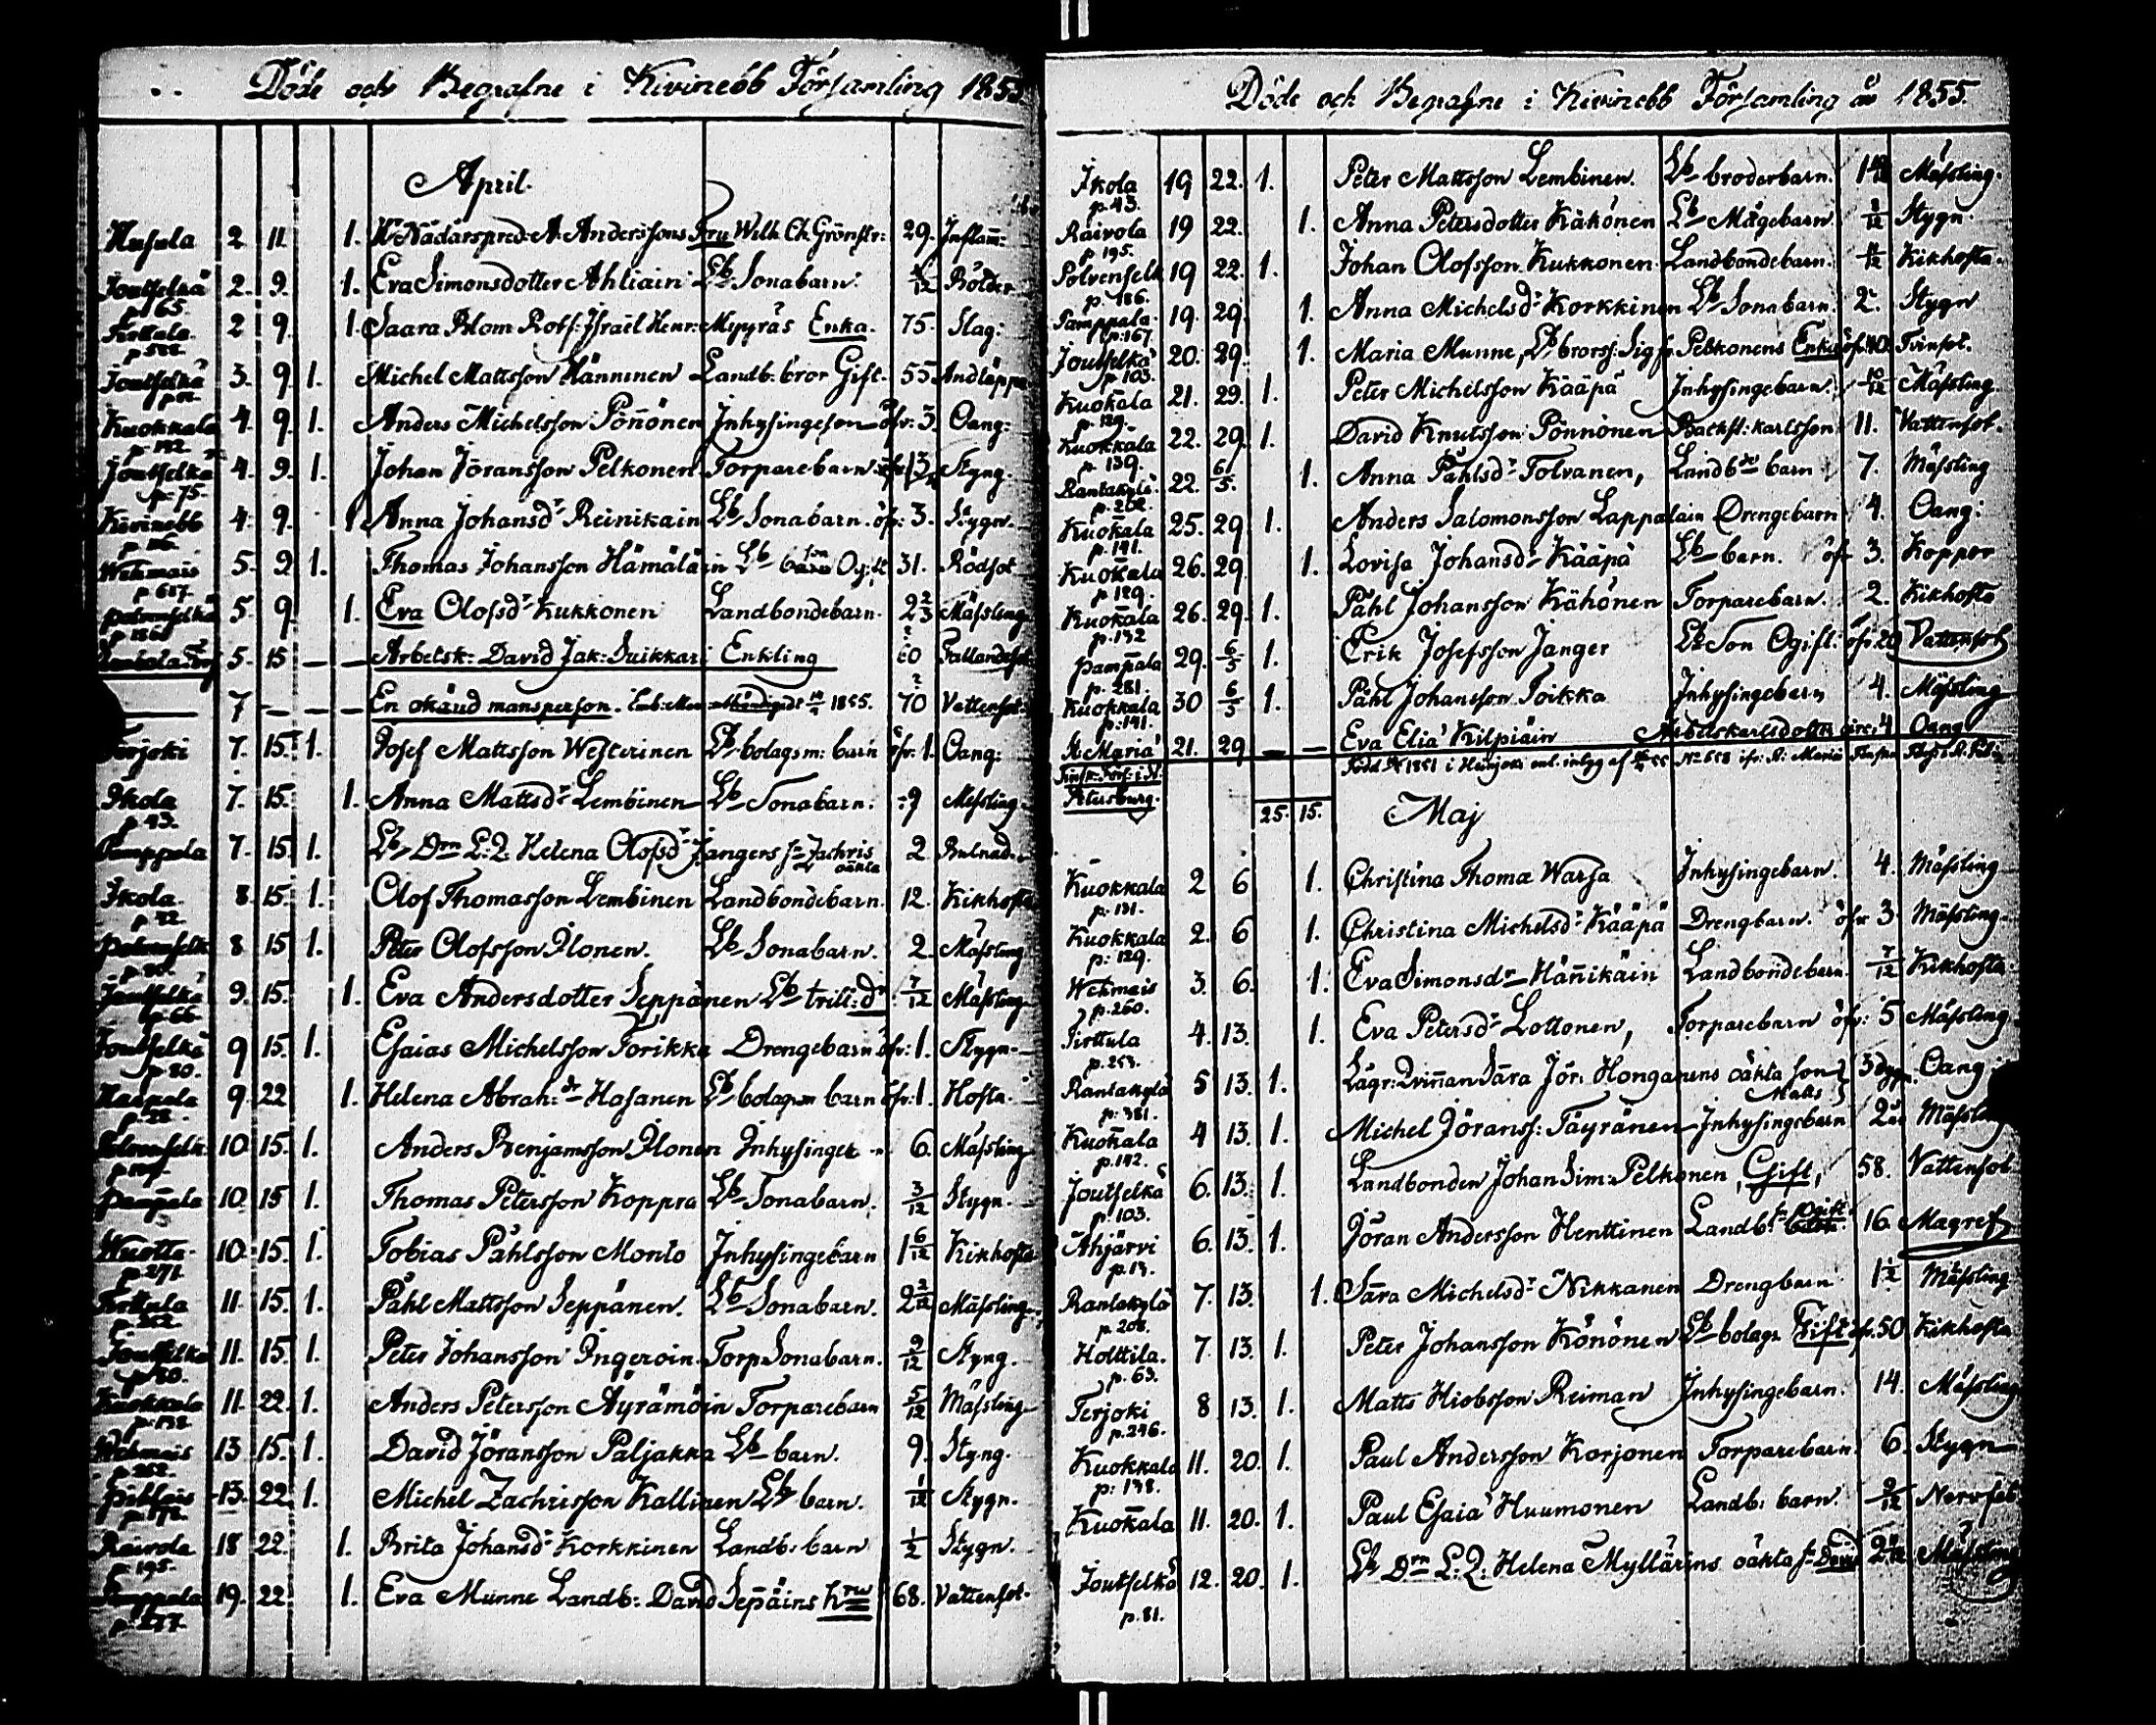 Döde och Begrafne i Kivinebb Församling 1855
April.
Husula 2 11. 1. Nådårspred: A. Anderssons Fru Wilh. Ch. Grönstr: 29. Inflam:
Joutselkä 2. 9. 1. Eva Simonsdotter Ahliain Lb Sonabarn. 4/12 Bölder
p 65.
2 9. 1. Saara Blom Rotf: Israël Henr: Myyräs Enka. 75. Slag:
Joutselkä 3. 9 1. Michel Mattsson Hänninen Landb. bror Gift. 55 Andtäppa
Kuokkala 4. 9. 1. Anders Michelsson Pönönen Inhysingeson öfv: 3. Oang:
p. 142.
Joutselkä 4. 9. 1. Johan Jöransson Pelkonen Torparebarn Styng.
p. 75.
Kivinebb 4. 9. 1 Anna Johansdr Reinikain Lb Sonabarn. öfv: 3. Stygn.
p. 116.
Wehmais 5. 9 1. Thomas Johansson Hämäläin Lb son Ogift 31. Rödsot
p 687.
Polvenselkä 5 9. 1. Eva Olofsdr Kukkonen Landbondebarn. 2 2/3 Mässling
p 186
5. 15 — — Arbetsk: David Jak: Suikkari Enkling 60 Fallandesot
7 — — — En okänd mansperson. 1855. 70 Vattensot
Terjoki 7. 15. 1. Josef Mattsson Westerinen Lb bolagsm: barn öfv. 1. Oang:
Ikola 7. 15. 1. Anna Mattsdr Lembinen Lb Sonabarn. 9 Messling.
p 43.
Pamppala 7. 15 1. Lb Drn L: Q. Helena Olofsdr Jangers sn Zachris 2
oäkta
Ikola. 8. 15. 1. Olof Thomasson Lembinen Landbondebarn. 12. Kikhosta
p. 42.
Polvenselk 8 15 1. Peter Olofsson Ilonen. Lb Sonabarn. 2. Mässling
Joutselkä 9. 15. 1. Eva Andersdotter Seppänen Lb trill: dr 7/12 Mässling
p. 66.
Joutselkä 9 15. 1. Esaias Michelsson Torikka Drengebarn öfv: 1. Stygn.
p 80.
Haapala 9. 22 1. Helena Abrah: dr Hasanen Lb bolagsm barn öfv. 1. Hosta.
p 22.
Polvenselk 10. 15. 1. Anders Benjamsson Ilonen Inhysinget 6. Mässling
Pampala 10. 15 1. Thomas Petersson Koppra Lb Sonabarn. 3/12 Stygn.
Wuotta. 10. 15. 1. Tobias Påhlsson Monto Inhysingebarn 1 6/12 Kikhosta
p. 271.
Kottula 11. 15. 1. Påhl Mattsson Seppänen. Lb Sonabarn. 2 2/12 Mässling.
p. 252
Joutselkä 11. 15. 1. Peter Johansson Ingeroin. Torp Sonabarn. 9/12 Styng.
p 80.
Kuokkala 11. 22. 1. Anders Petersson Äyrämöin Torparebarn 5/12 Mässling
p. 138.
Wehmais 13 15. 1. David Jöransson Paljakka Lb barn. 9. Styng.
p 262.
Pihlais 13. 22. 1. Michel Zachrisson Kallinen Lb barn. 1/12 Stygn.
p. 172.
Raivola 18 22. 1. Brita Johansdr Korkkinen Landb. barn 1/2 Stygn.
p 195.
Pamppala 19. 22. 1. Eva Munne Landb: David Sepäins hru 68. Vattensot.
p. 277.
Döde och Begrafne i Kivinebb Församling år 1855.
Ikola 19 22. 1. Peter Mattsson Lembinen. Lb broderbarn. Mässling.
p. 43.
Raivola 19 22. 1. Anna Petersdotter Kähönen Lb Mågebarn. Stygn.
p 195.
Polvenselk 19 22. 1. Johan Olofsson Kukkonen Landbondebarn. Kikhosta.
p. 186.
Pamppala. 19. 29. 1. Anna Michelsdr Korkkinen Lb Sonabarn. 2. Stygn
p: 167.
Joutselkä 20. 29. 1. Maria Munne, Lb brors: Sigfr. Pelkonens Enka öfv. 40. Tvinsot.
p 103.
Kuokala 21. 29. 1. Peter Michelsson Kääpä Inhysingebarn. 10/12 Mässling.
p. 129.
Kuokkala 22. 29. 1. David Knutsson Pönnönen Backst: karlsson 11. Vattensot.
p. 139.
Rantakylä. 22. 6/5. 1. Anna Påhlsdr Tolvanen, Landb barn 7. Mässling
p. 202.
Kuokala 25. 29 1. Anders Salomonsson Lappalain Drengebarn 4. Oang:
p. 141.
Kuokala 26. 29. 1. Lovisa Johansdr Kääpä Lb barn. öfv 3. Koppor
p 129.
Kuokala 26. 29. 1. Påhl Johansson Kähönen Torparebarn. 2. Kikhosta
p. 132
Pampala 29. 6/5 1. Erik Josefsson Janger Lb Son Ogift. öfv. 20 Vattensot
p. 281.
Kuokkala 30 6/5 1. Påhl Johansson Toikka Inhysingebarn 4. Mässling
p: 141.
St Maria 21. 29 — — Eva Elia Kilpiäin Arbetskarlsdotter circ. 4 Oang
Finsk: Förs: i St. 1851 i
Petersburg.
25. 15. Maj
Kuokkala 2 6 1. Christina Thomæ Warsa Inhysingebarn. 4. Mässling
p. 131.
Kuokkala 2. 6 1. Christina Michelsdr Kääpä Drengbarn. öfv 3. Mässling.
p: 129.
Wehmais 3. 6. 1. Eva Simonsdr Hännikäin Landbondebarn. 7/12 Kikhosta.
p. 260.
Pirttula 4. 13. 1. Eva Petersdr Lottonen, Torparebarn öfv: 5 Mässling.
p. 253.
Rantakylä 5 13. 1. Lägr: Qvinnan Sara Jör: Honganens oäkta son 3 dygn. Oang:
p: 381. Matts
Kuokala 4 13. 1. Michel Jöranss: Täyränen Inhysingebarn 2
p. 142.
Joutselkä 6. 13. 1. Landbonden Johan Sim: Pelkonen, Gift, 58. Vattensot
p. 103.
Ahjärvi 6. 13. 1. Jöran Andersson Henttinen Landb: sn Ogift 16. Magref
p. 13.
Rantakylä 7. 13. 1. Sara Michelsdr Nikkanen Drengbarn 1 1/2 Mässling
p. 208.
Holttila. 7. 13. 1. Peter Johansson Könönen Lb bolags Gift öfv. 50 Kikhosta
p. 63.
Terjoki 8. 13. 1. Matts Hiobsson Reiman Inhysingebarn. 14. Mässling
p. 246.
Kuokkala 11. 20. 1. Paul Andersson Korjonen Torparebarn. 6. Stygn
p: 138.
Kuokala 11. 20. 1. Paul Esaiæ Huumonen Landb: barn. 9/12 Nervfeb.
Joutselkä 12. 20. 1. Lb Drn L: Q: Helena Myllärins oäkta sn David Mässling
p. 81.